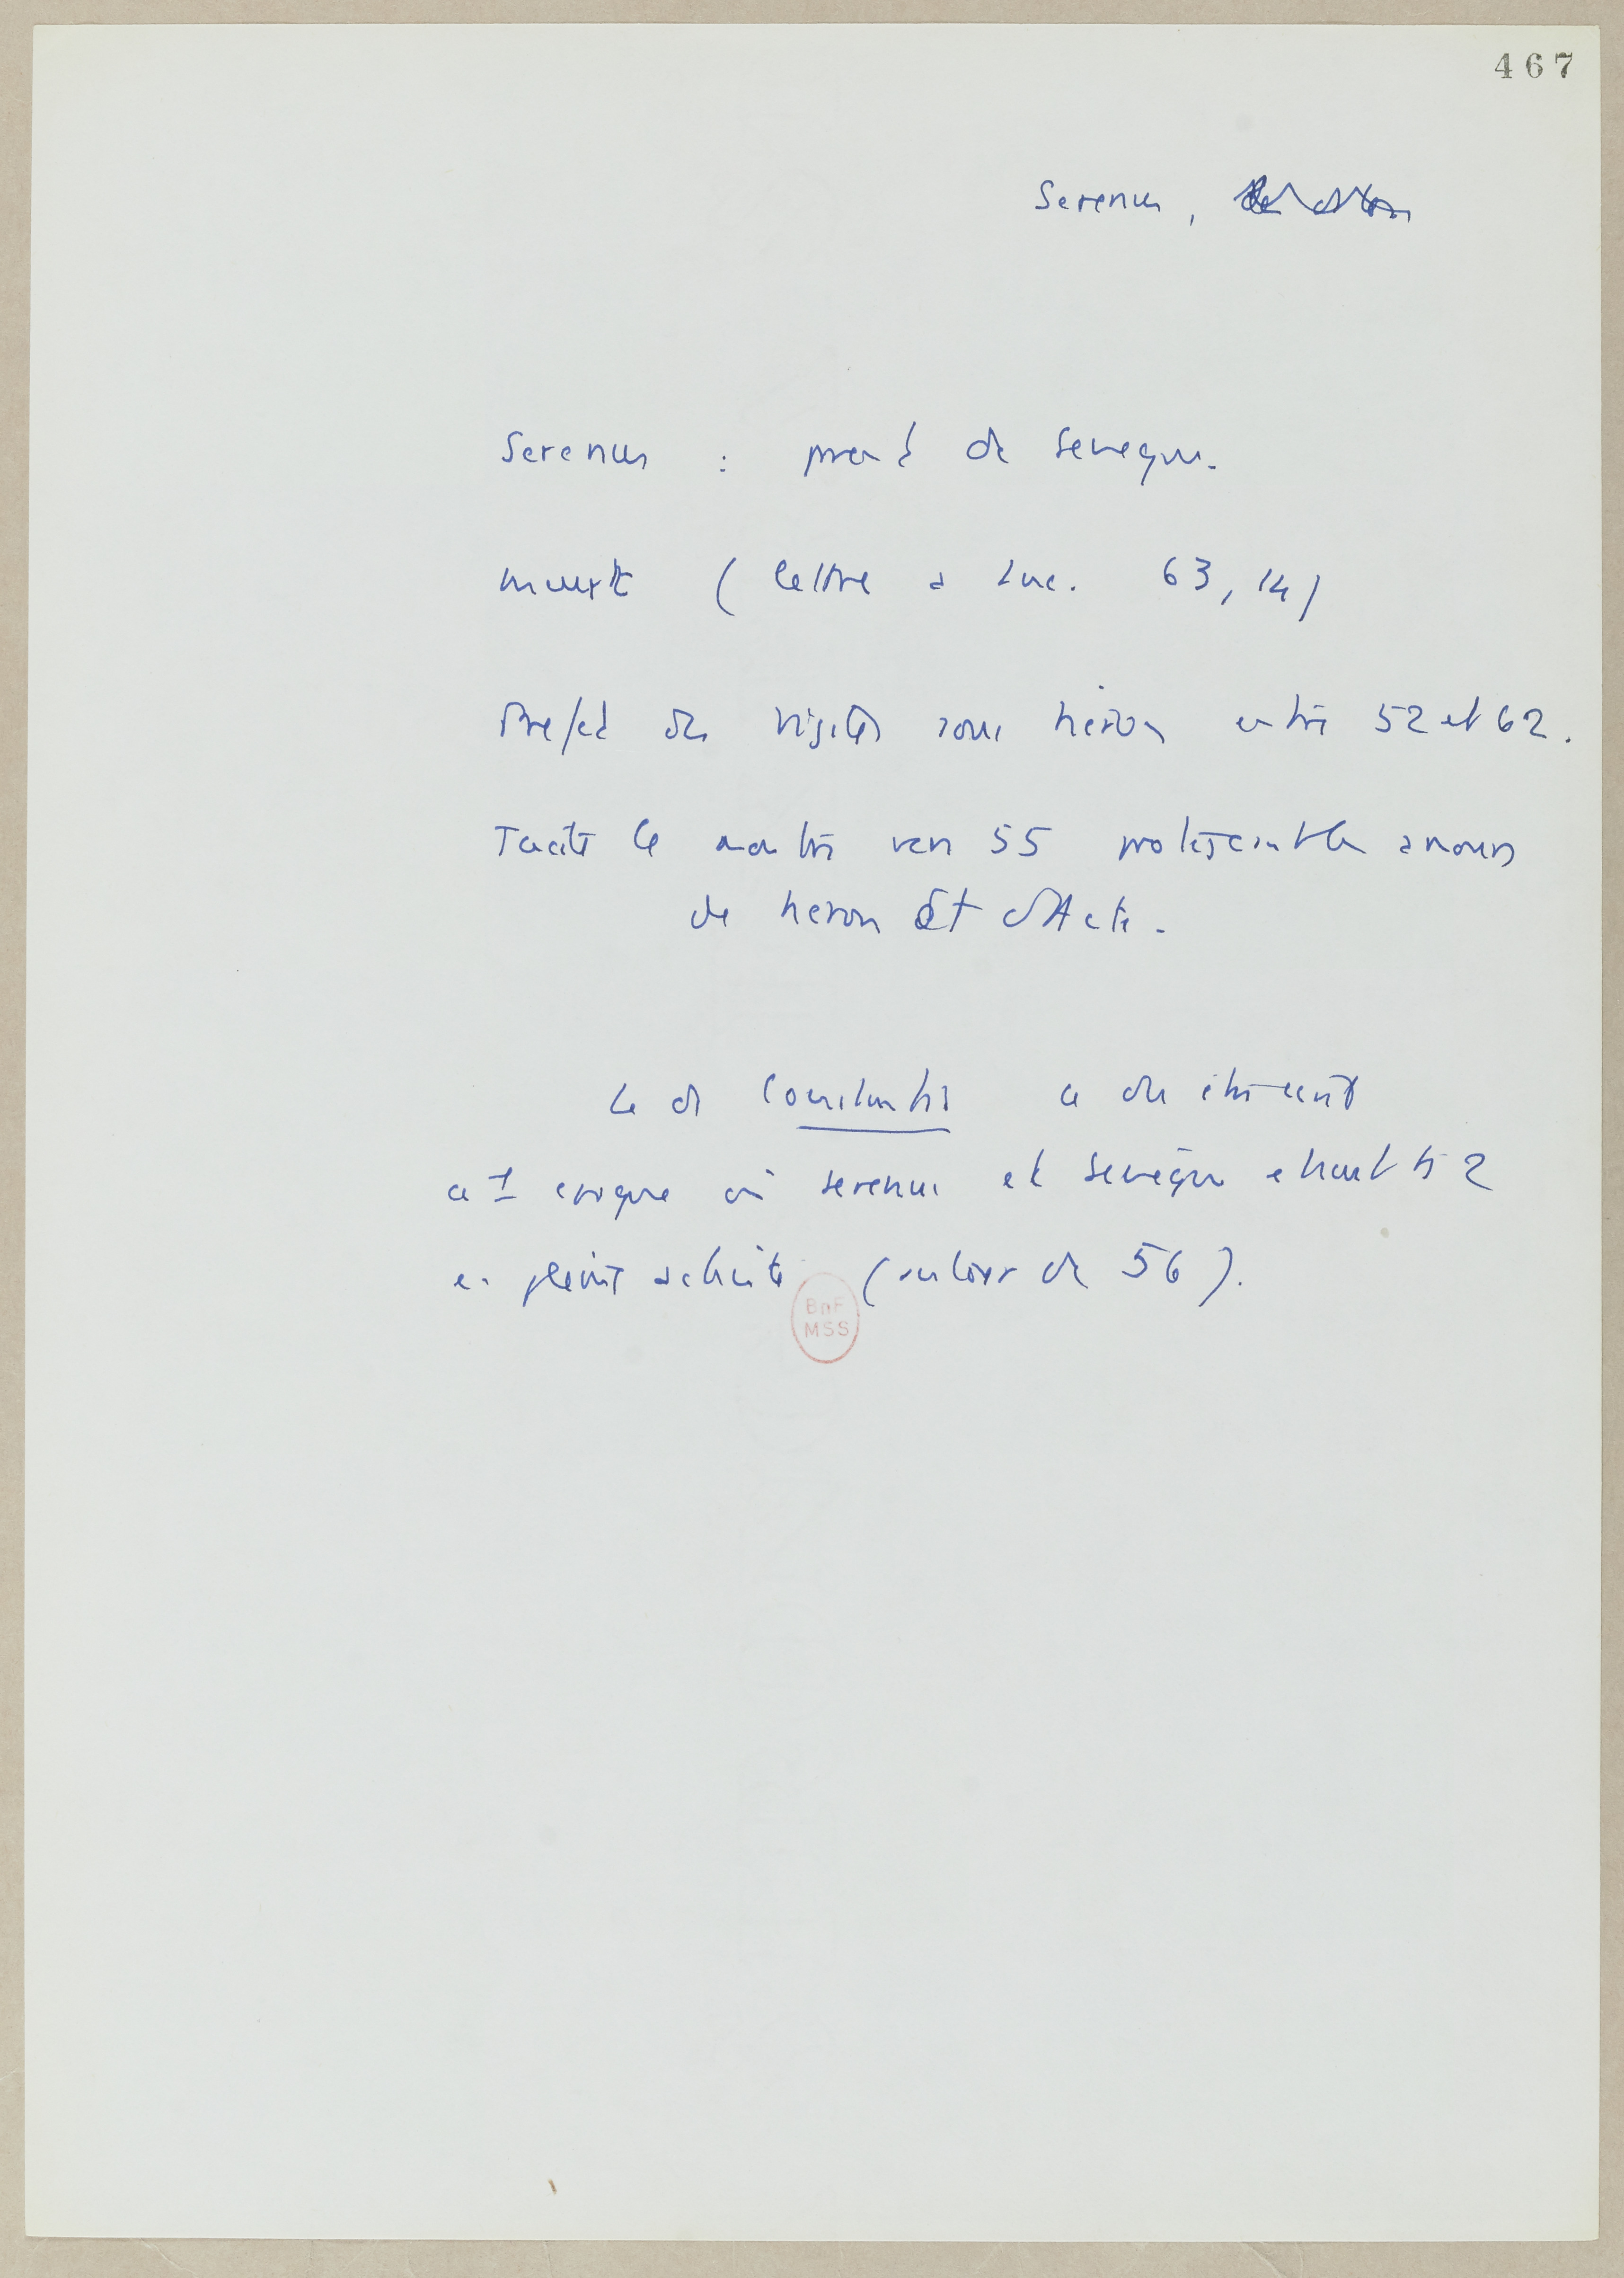 467
Serenus,
Serenus : parent de Seneque.
meurt (lettre a Luc. 63, 14)
Prefet des vigiles sous Neron entre 52 et 62.
Tacite le montre vers 55 protegeant les amours
de Neron et d'Acte.
Le de Constantia a du être écrit
a 1 epoque où Serenus et Sénèque etaient ts 2
en pleine activité (autour de 56).
BnF
MSS